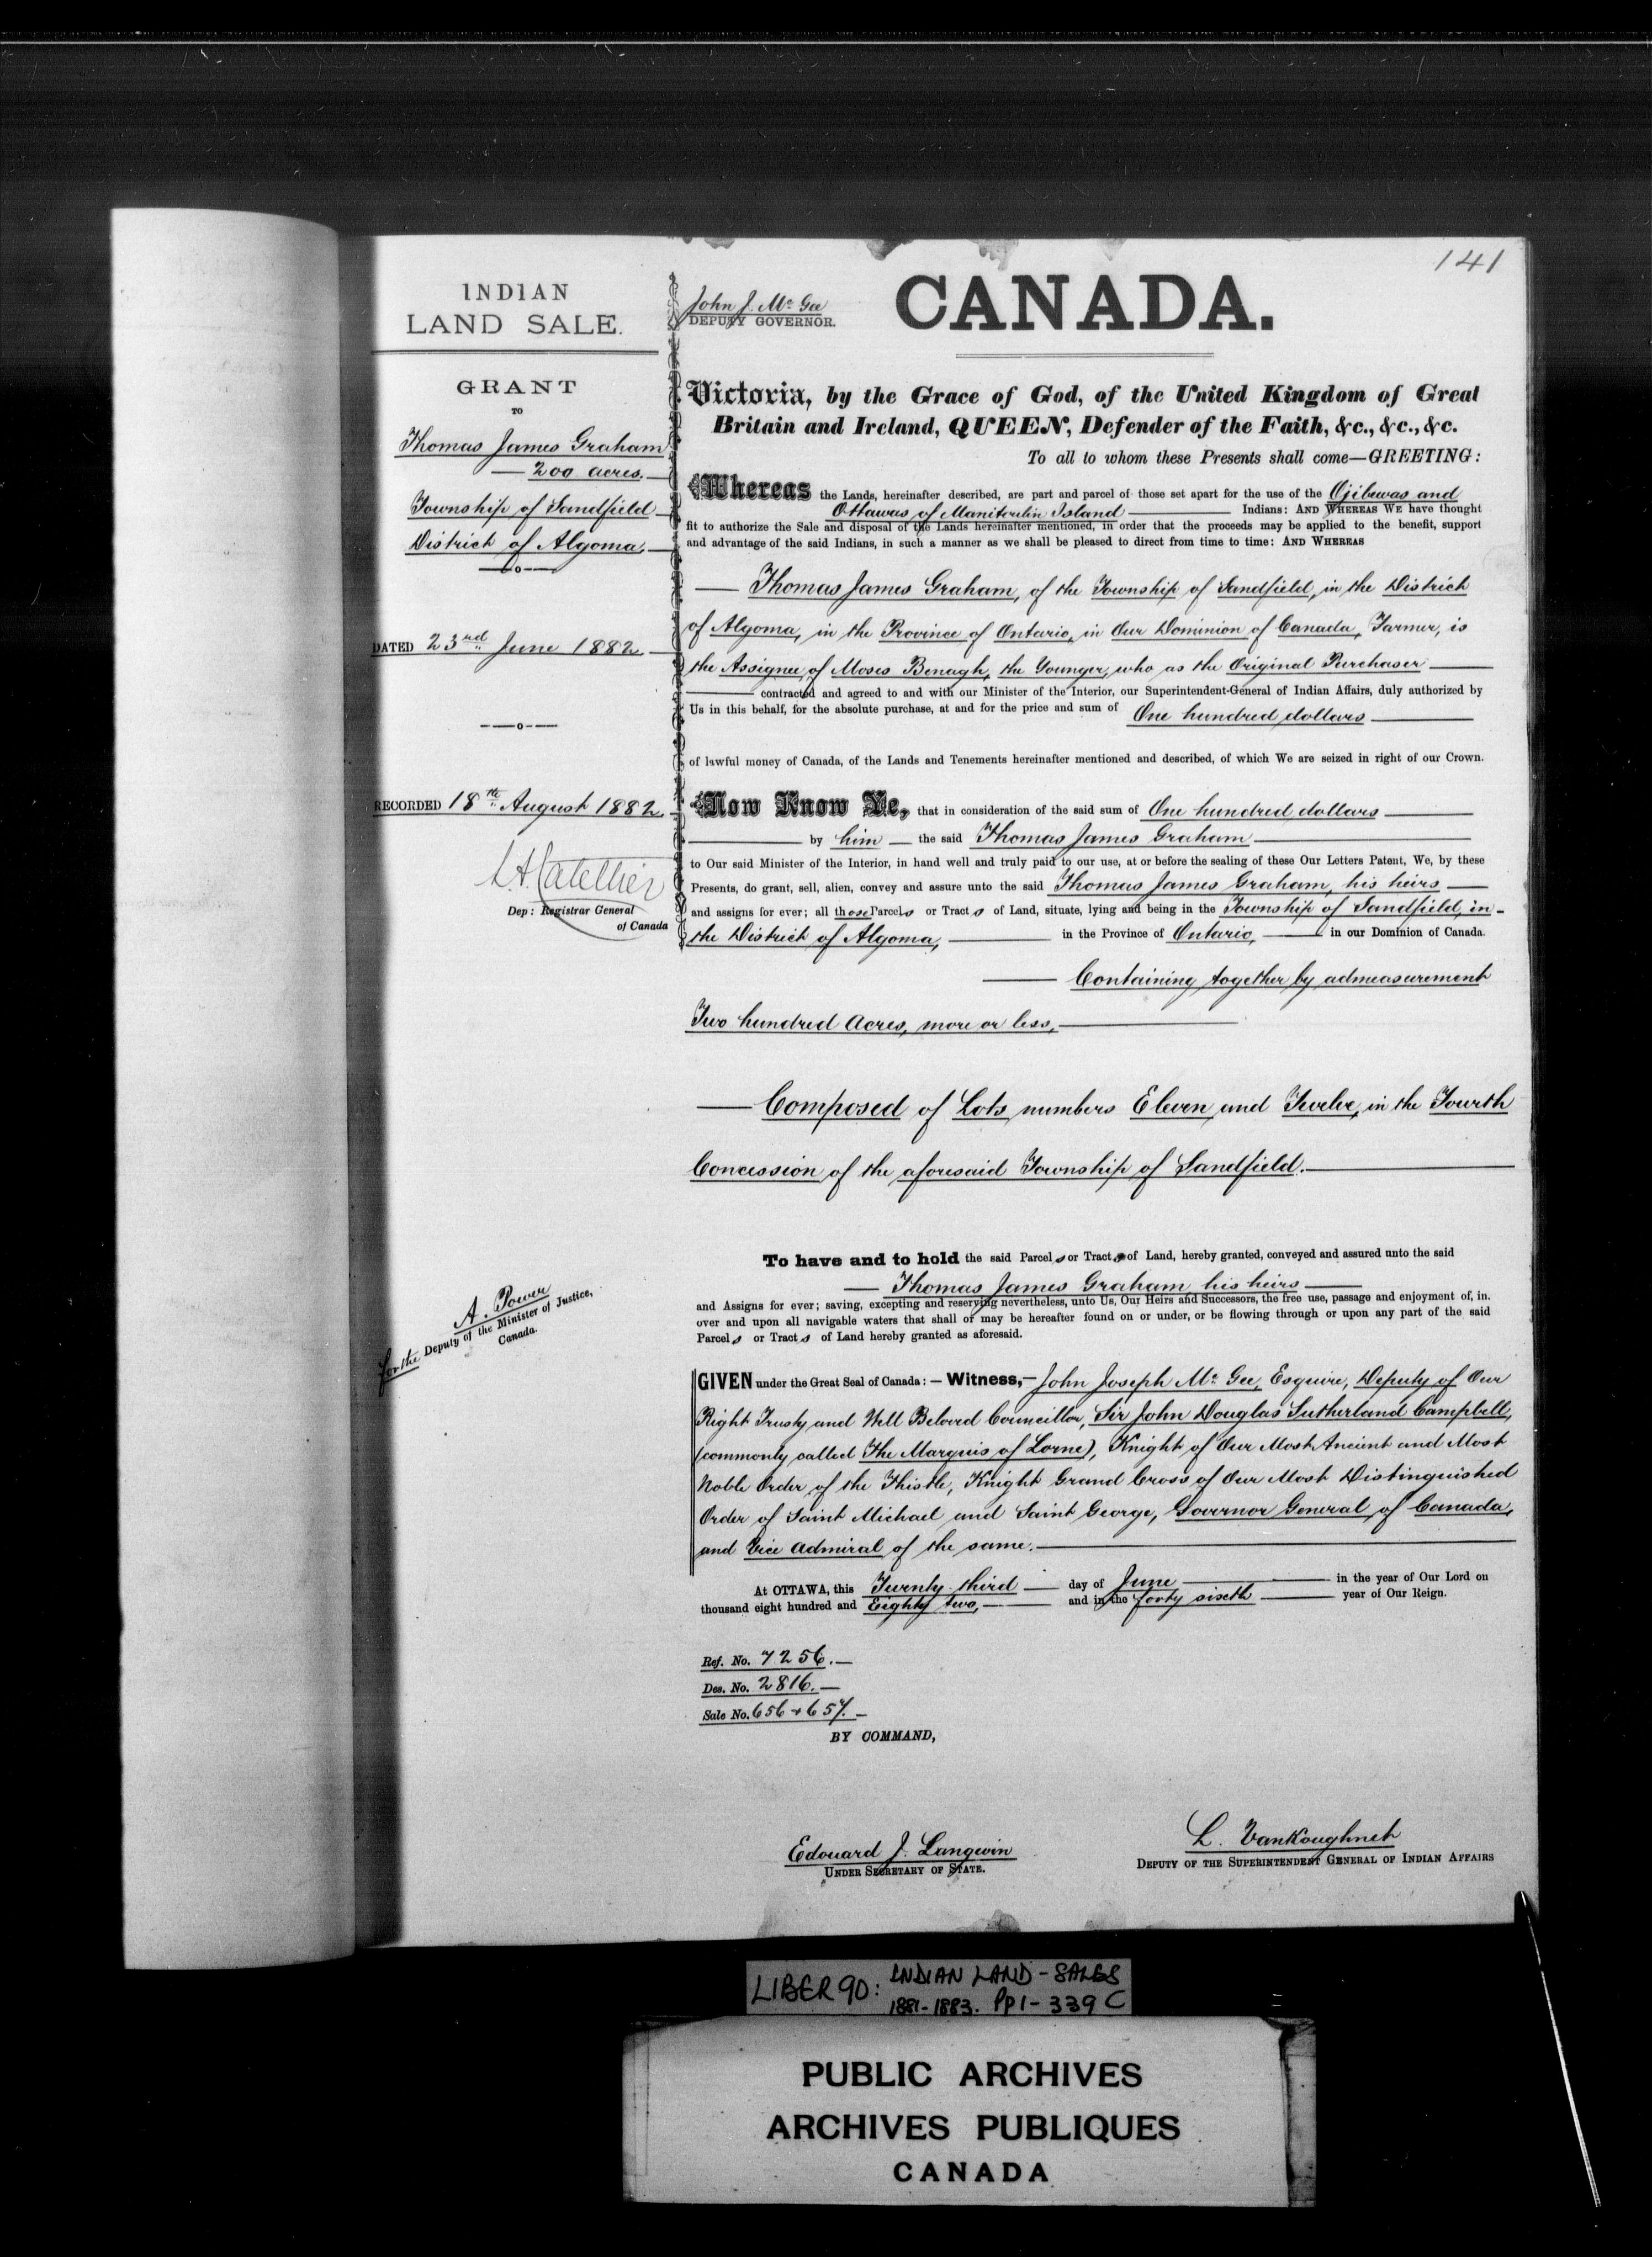 141
INDIAN
LAND SALE.
GRANT
TO
Thomas James Graham
— 200 acres. —
Township of Sandfield —
District of Algoma, —
—o—
DATED 23rd June 1882. —
—o—
RECORDED 18th August 1882. —
L.A. Catellier
Dep: Registrar General
of Canada
A. Power
for the Deputy of the Minister of Justice,
Canada.
John J. McGee
DEPUTY GOVERNOR.
CANADA.
Victoria, by the Grace of God, of the United Kingdom of Great
Britain and Ireland, QUEEN, Defender of the Faith, &c., &c., &c.
To all to whom these Presents shall come—GREETING:
Whereas the Lands, hereinafter described, are part and parcel of those set apart for the use of the Ojibewas and
Ottawas of Manitoulin Island — Indians: AND WHEREAS WE have thought
fit to authorize the Sale and disposal of the Lands hereinafter mentioned, in order that the proceeds may be applied to the benefit, support
and advantage of the said Indians, in such a manner as we shall be pleased to direct from time to time: AND WHEREAS
— Thomas James Graham, of the Township of Sandfield, in the District
of Algoma, in the Province of Ontario, in Our Dominion of Canada, Farmer, is
the Assignee of Moses Benagh, the Younger, who as the Original Purchaser —
— contracted and agreed to and with our Minister of the Interior, our Superintendent-General of Indian Affairs, duly authorized by
Us in this behalf, for the absolute purchase, at and for the price and sum of One hundred dollars —
of lawful money of Canada, of the Lands and Tenements hereinafter mentioned and described, of which We are seized in right of our Crown.
Now Know Ye, that in consideration of the said sum of One hundred dollars —
— by him — the said Thomas James Graham —
to Our said Minister of the Interior, in hand well and truly paid to our use, at or before the sealing of these Our Letters Patent, We, by these
Presents, do grant, sell, alien, convey and assure unto the said Thomas James Graham, his heirs —
and assigns for ever; all those Parcels or Tracts of Land, situate, lying and being in the Township of Sandfield, in -
the District of Algoma, — in the Province of Ontario, — in our Dominion of Canada.
— Containing together by admeasurement
Two hundred Acres, more or less, —
— Composed of Lots numbers Eleven and Twelve, in the Fourth
Concession of the aforesaid Township of Sandfield. —
To have and to hold the said Parcels or Tracts of Land, hereby granted, conveyed and assured unto the said
— Thomas James Graham his heirs —
and Assigns for ever; saving, excepting and reserving nevertheless, unto Us, Our Heirs and Successors, the free use, passage and enjoyment of, in.
over and upon all navigable waters that shall or may be hereafter found on or under, or be flowing through or upon any part of the said
Parcels or Tracts of Land hereby granted as aforesaid.
GIVEN under the Great Seal of Canada: — Witness, — John Joseph McGee, Esquire, Deputy of Our
Right Trusty and Well Beloved Councillor, Sir John Douglas Sutherland Campbell,
(commonly called The Marquis of Lorne), Knight of Our Most Ancient and Most
Noble Order of the Thistle, Knight Grand Cross of Our Most Distinguished
Order of Saint Michael and Saint George, Governor General of Canada,
and Vice Admiral of the same. —
At OTTAWA, this Twenty third — day of June — in the year of Our Lord on
thousand eight hundred and Eighty two, — and in the forty sixth — year of Our Reign.
Ref. No. 7256. —
Des. No. 2816. —
Sale No. 656 + 657. —
BY COMMAND,
Edouard J. Langevin
UNDER SECRETARY OF STATE.
L. VanKoughnet
DEPUTY OF THE SUPERINTENDENT GENERAL OF INDIAN AFFAIRS
LIBER 90: INDIAN LAND-SALES
1881-1883. PP 1-339 C
PUBLIC ARCHIVES
ARCHIVES PUBLIQUES
CANADA